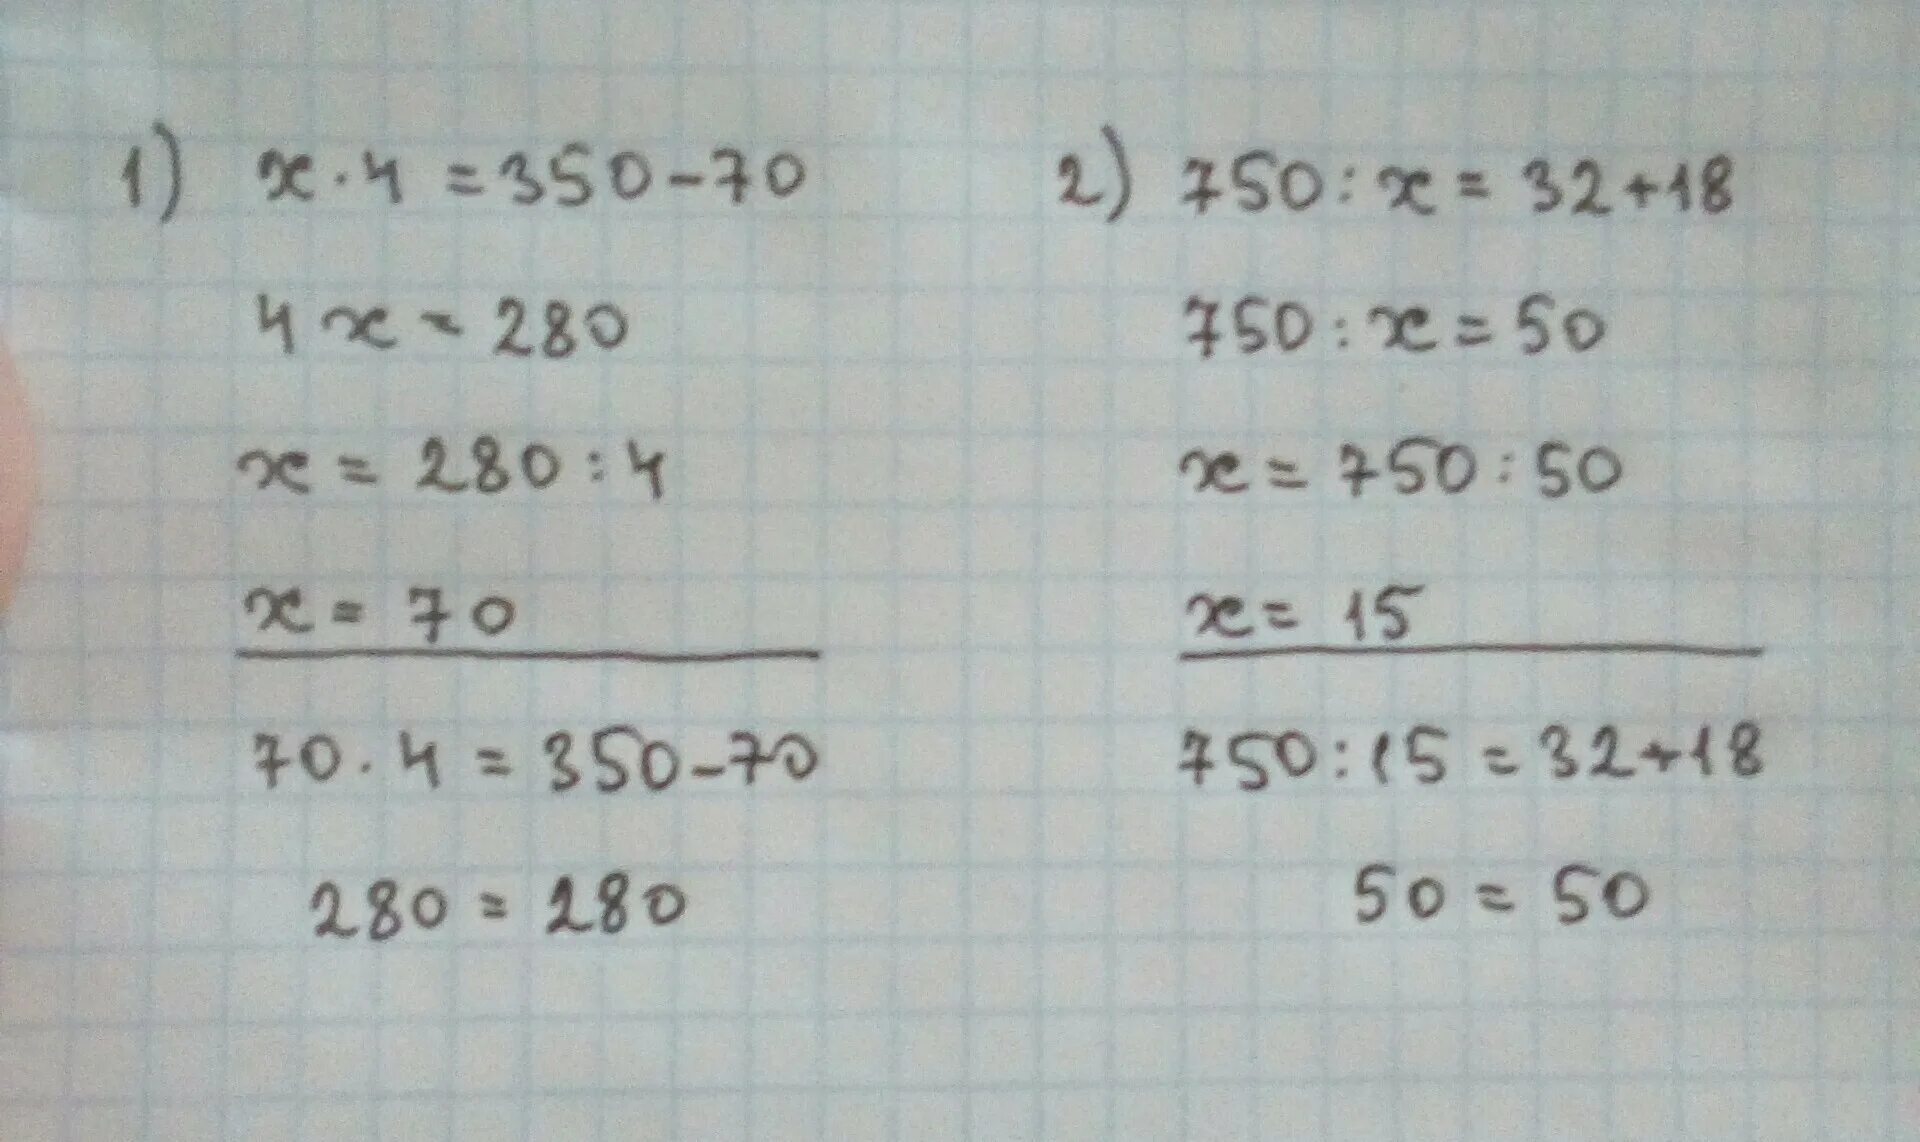 1) x · 4 = 350 - 70
4x = 280
x = 280 : 4
x = 70
70 · 4 = 350 - 70
280 = 280
2) 750 : x = 32 + 18
750 : x = 50
x = 750 : 50
x = 15
750 : 15 = 32 + 18
50 = 50